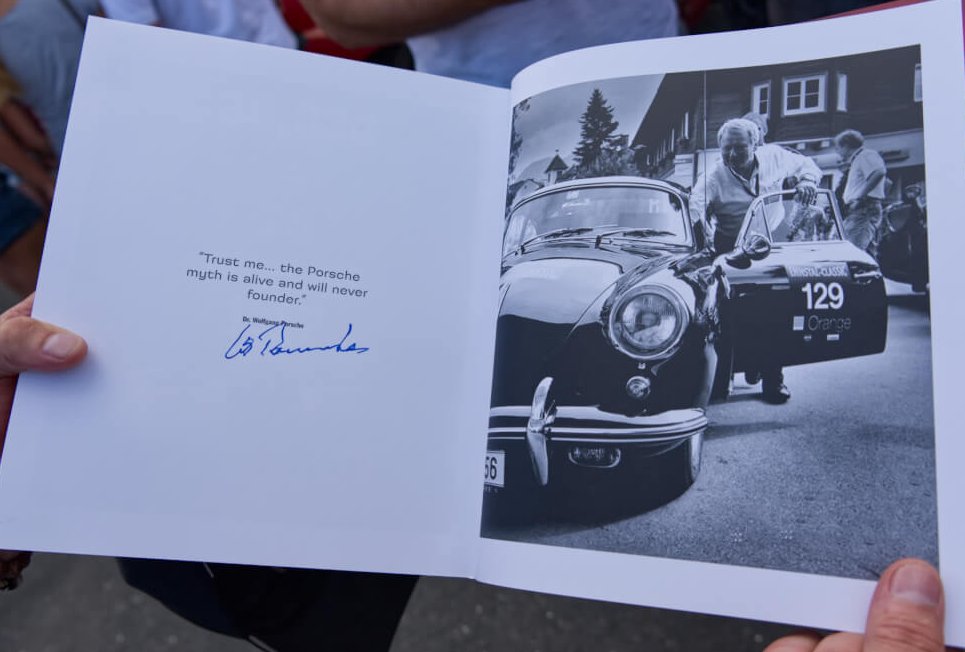 “Trust me... the Porsche
myth is alive and will never
founder.”
Dr. Wolfgang Porsche
129
Orange
56